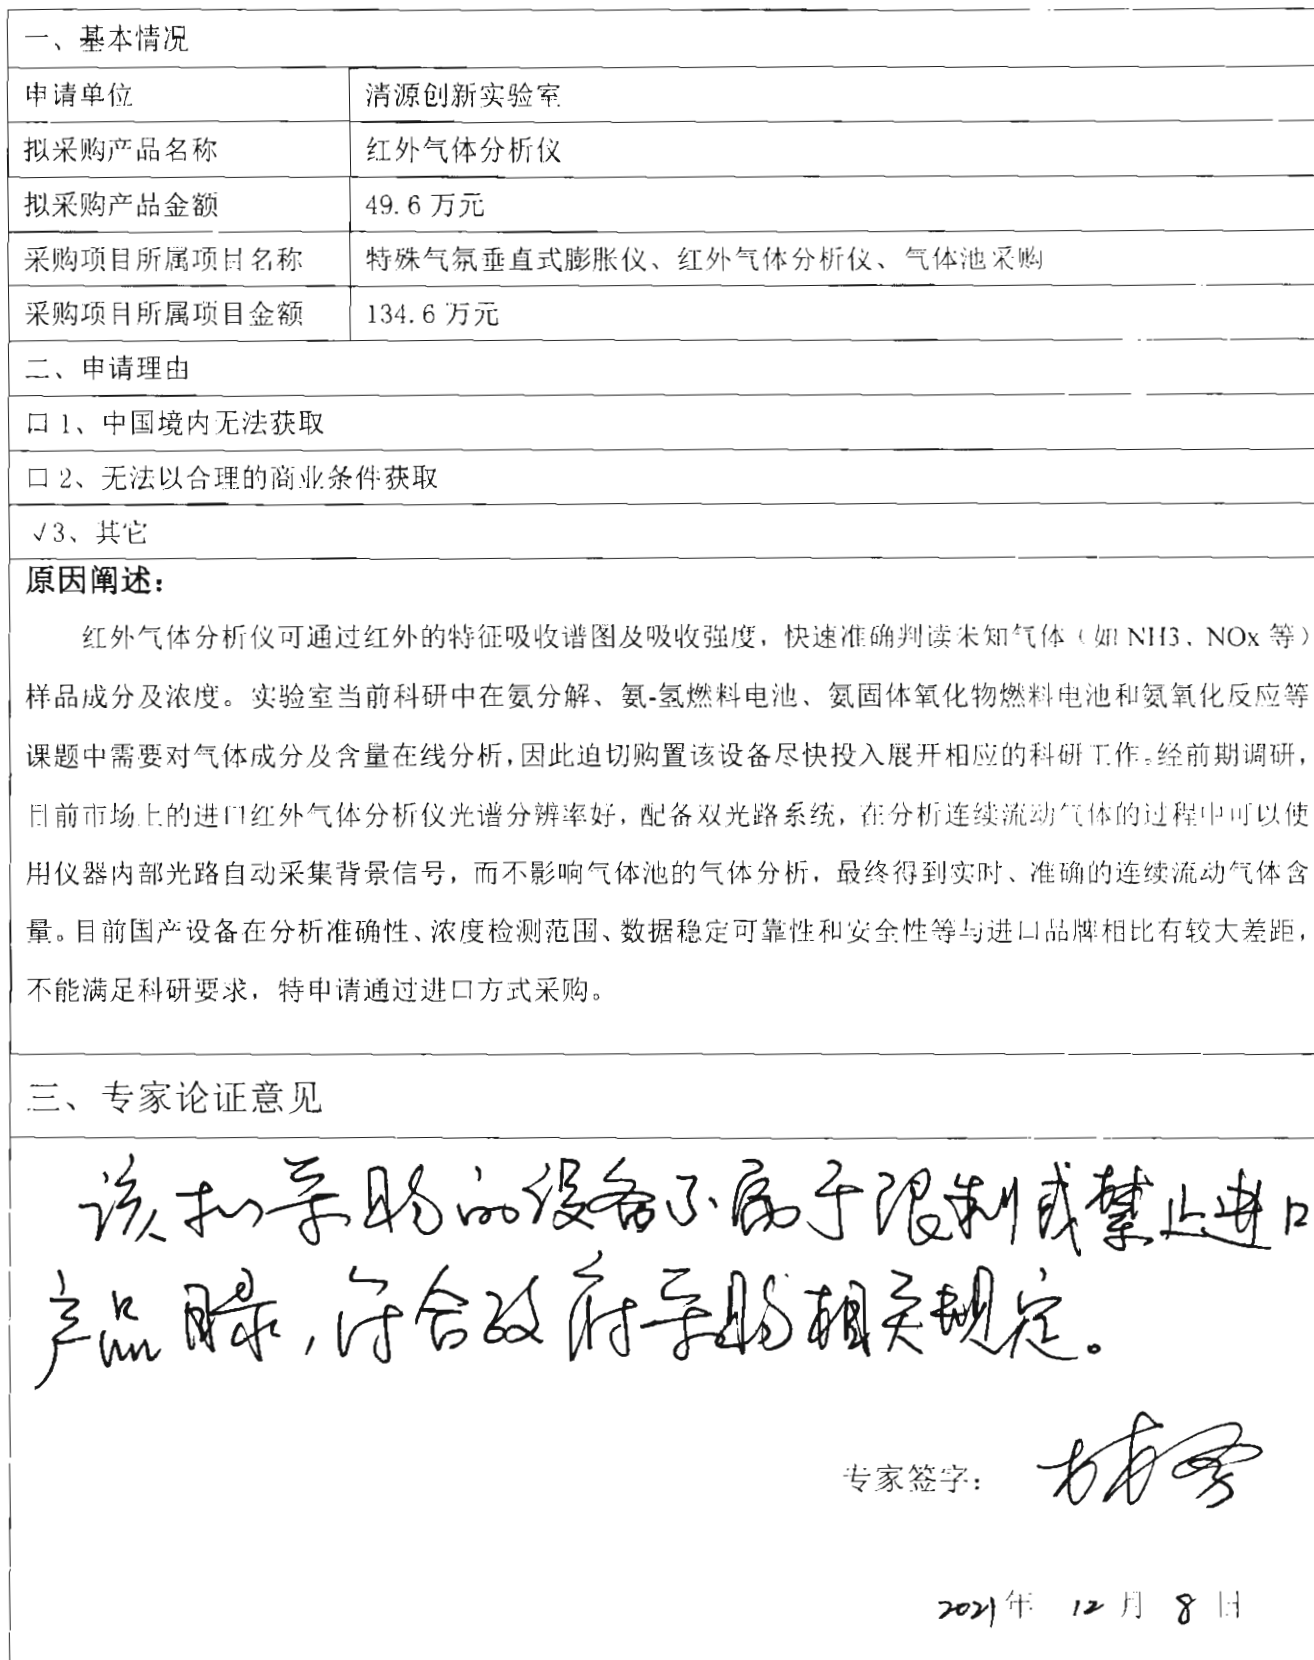 一、基本情况
申请单位 清源创新实验室
拟采购产品名称 红外气体分析仪
拟采购产品金额 49.6 万元
采购项目所属项目名称 特殊气氛垂直式膨胀仪、红外气体分析仪、气体池采购
采购项目所属项目金额 134.6 万元
二、申请理由
口 1、中国境内无法获取
口 2、无法以合理的商业条件获取
√3、其它
原因阐述：
红外气体分析仪可通过红外的特征吸收谱图及吸收强度，快速准确判读未知气体（如 NH3、NOx 等）
样品成分及浓度。实验室当前科研中在氨分解、氨-氢燃料电池、氨固体氧化物燃料电池和氨氧化反应等
课题中需要对气体成分及含量在线分析，因此迫切购置该设备尽快投入展开相应的科研工作。经前期调研，
目前市场上的进口红外气体分析仪光谱分辨率好，配备双光路系统，在分析连续流动气体的过程中可以使
用仪器内部光路自动采集背景信号，而不影响气体池的气体分析，最终得到实时、准确的连续流动气体含
量。目前国产设备在分析准确性、浓度检测范围、数据稳定可靠性和安全性等与进口品牌相比有较大差距，
不能满足科研要求，特申请通过进口方式采购。
三、专家论证意见
该拟采购的设备不属于限制或禁止进口
产品目录，符合政府采购相关规定。
专家签字：
2021年 12月 8日